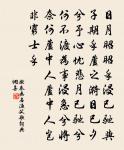 日月昭昭乎浸已馳與
子期乎蘆之漪日已夕
兮予心憂悲月已馳兮
何不渡為事浸急兮將
奈何蘆中人蘆中人豈
非窮士乎